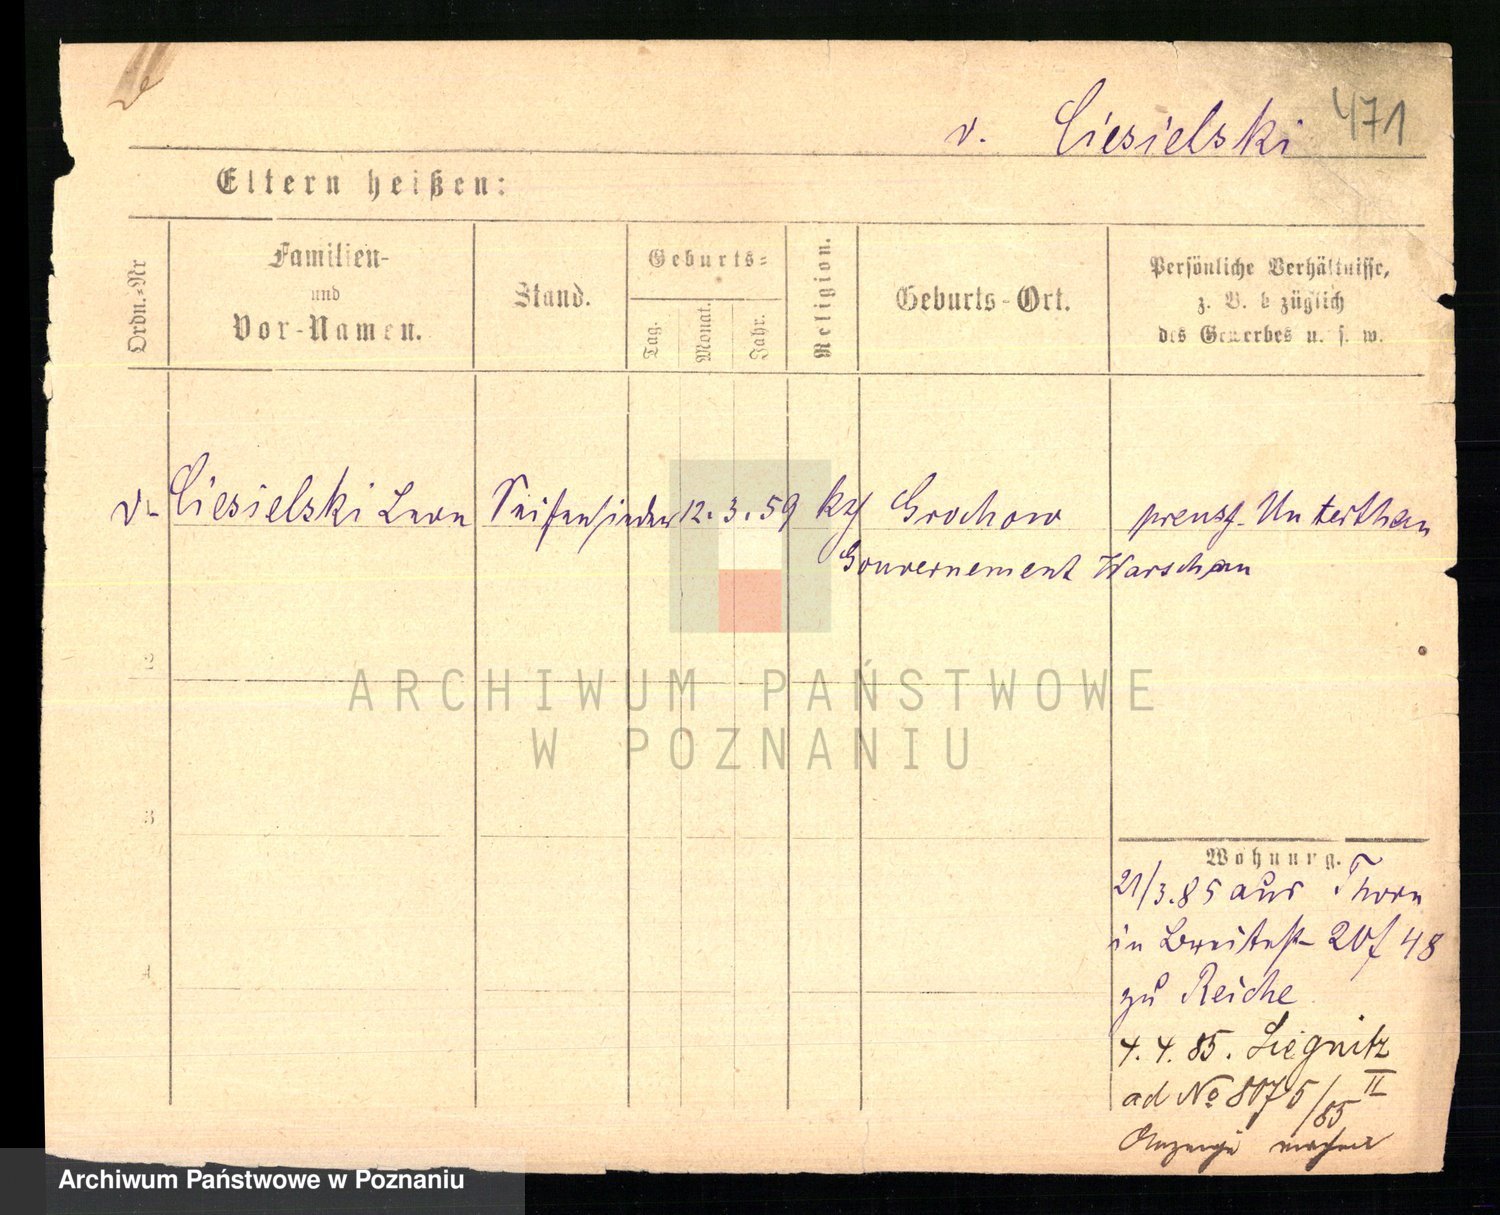 v. Ciesielski 471
Eltern heißen:
Ordn.-Nr
Familien-
und
Vor-Namen.
Stand.
Geburts-
Tag.
Monat.
Jahr.
Religion.
Geburts-Ort.
Persönliche Verhältnisse,
z. B. bezüglich
des Gewerbes u. s. w.
v. Ciesielski Leon Seifensieder 12. 3. 59 Grochow preuss. Unterthan
Gouvernement Warschau
2
3
4
Wohnung.
21/3.85 aus Thorn
in Breitestr 20 48
zu Reiche
4. 4. 85. Liegnitz
ad No 8075/85 II
ARCHIWUM PAŃSTWOWE
W POZNANIU
Archiwum Państwowe w Poznaniu